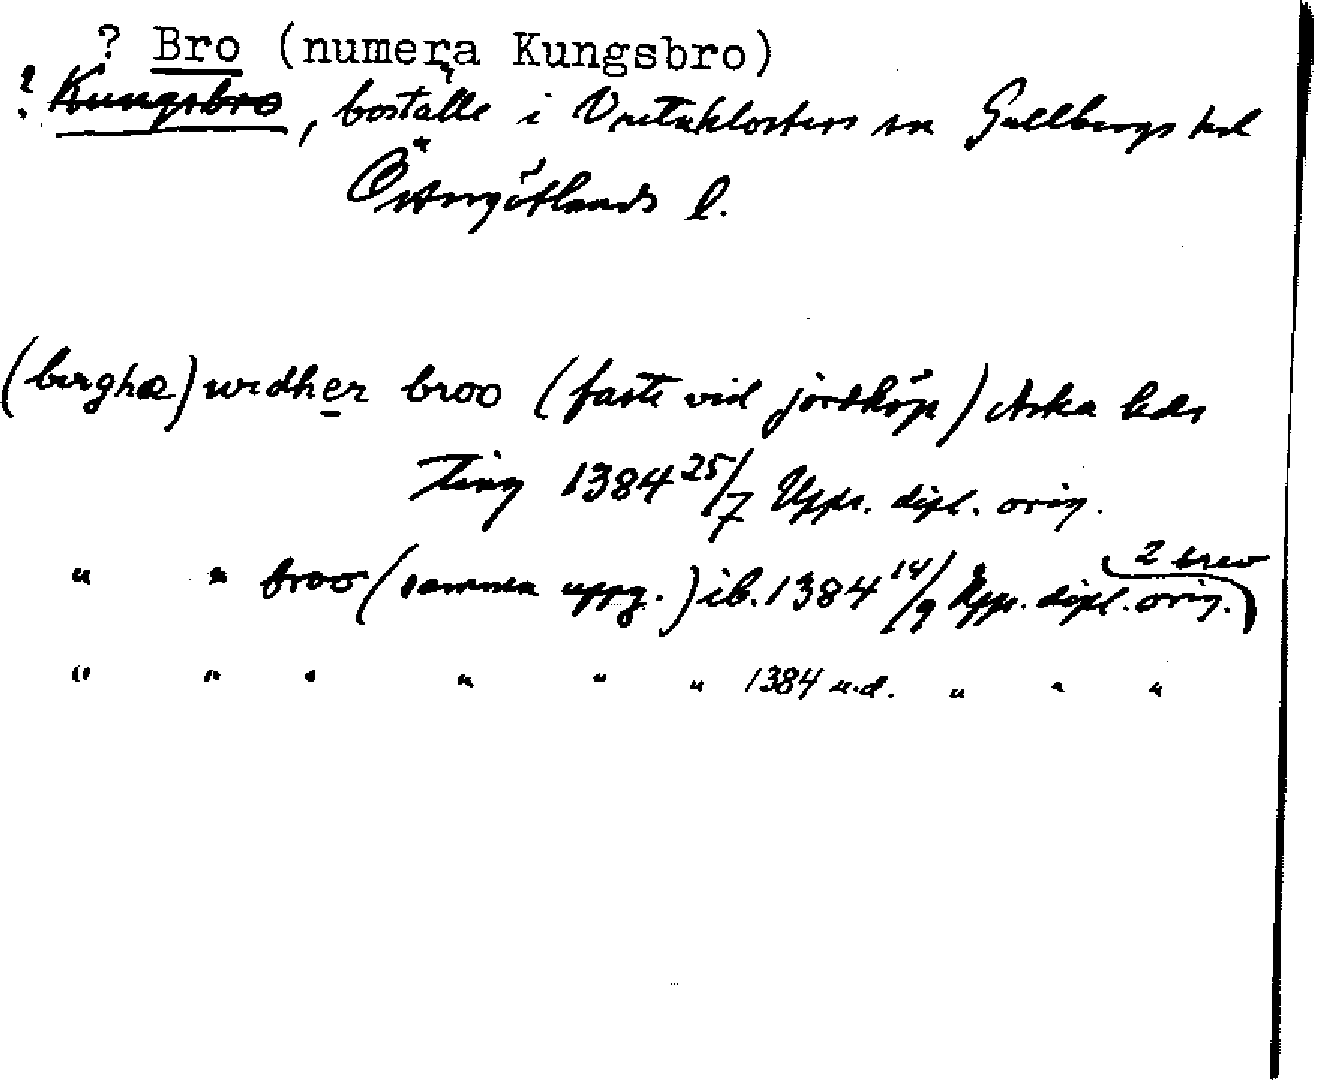 ? Bro (numera Kungsbro)
? Kungsbro, boställe i Vretaklosters sn Gullbergs hd
Östergötlands l.
(bergha) widher broo (faste vid jordköp) Aska hds
Ting 1384 25/7 Upps. dipl. orig.
" " broo (samma uppg.) ib. 1384 14/9 Upps. dipl. orig. 2 brev
" " " " " " 1384 u.d. " " "